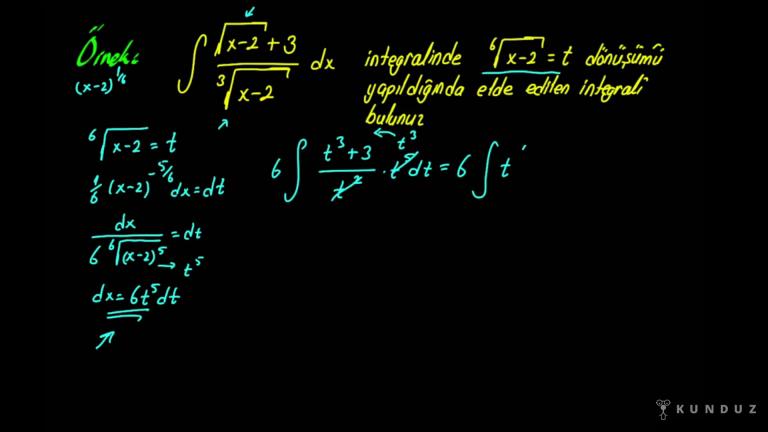 Örnek: ∫ (√(x-2) + 3) / ∛(x-2) dx integralinde ⁶√(x-2) = t dönüşümü
yapıldığında elde edilen integrali
bulunuz
(x-2)^(1/6)
⁶√(x-2) = t
1/6 (x-2)^(-5/6) dx = dt
dx / (6 ⁶√(x-2)⁵) = dt
→ t⁵
dx = 6t⁵dt
6 ∫ (t³+3) / t² · t⁵ dt = 6 ∫ t
← t³
KUNDUZ